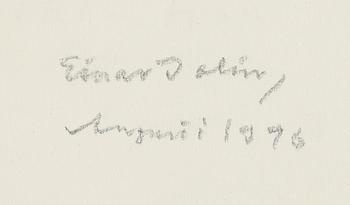 Einar Jolin,
Augusti 1976